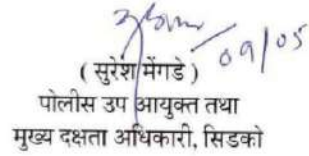 09/05
( सुरेश मेंगडे )
पोलीस उप आयुक्त तथा
मुख्य दक्षता अधिकारी, सिडको